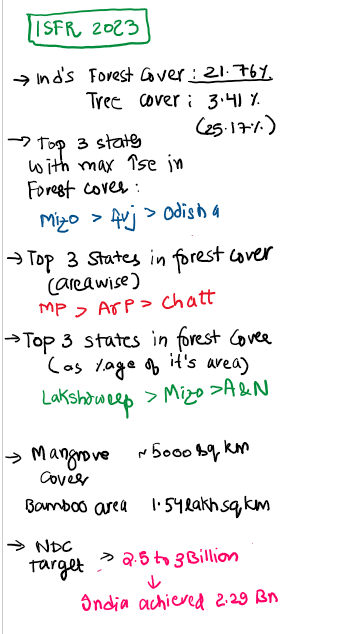 ISFR 2023
→ Ind's Forest Cover : 21.76%
Tree cover : 3.41 %
(25.17%)
→ Top 3 states
with max ↑se in
Forest cover :
Mizo > Guj > Odisha
→ Top 3 States in forest cover
(areawise)
MP > ArP > Chatt
→ Top 3 states in forest cover
(as %age of it's area)
Lakshdweep > Mizo > A&N
→ Mangrove ~5000 sq km
cover
Bamboo area 1.54 lakh sq km
→ NDC
Target → 2.5 to 3 Billion
↓
India achieved 2.29 Bn